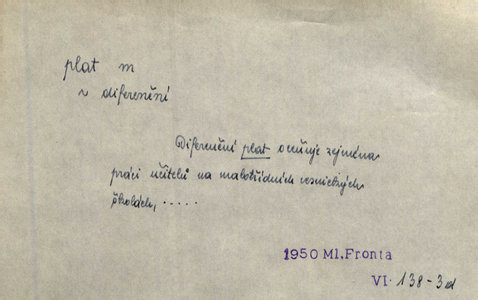 plat m
v diferenční
Diferenční plat oceňuje zejména
práci učitelů na malotřídních vesnických
školách, .....
1950 Ml.Fronta
VI. 138-3d